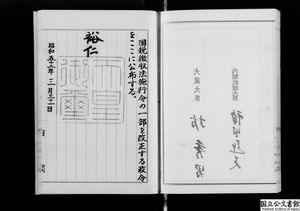 国税徴収法施行令の一部を改正する政令
をここに公布する。
裕仁
天皇御璽
昭和五十二年三月三十一日
内閣総理大臣
福田赳夫
大蔵大臣
坊秀男
国立公文書館
National Archives of Japan